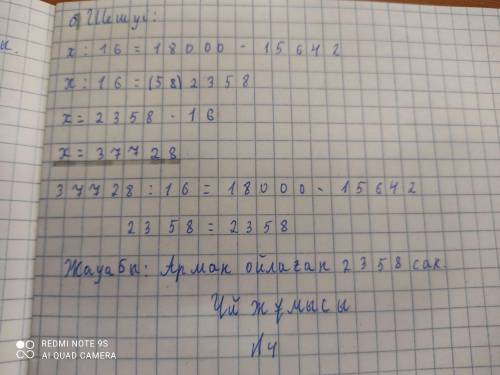 ы.
б) Шешуі:
x : 16 = 18000 - 15642
x : 16 = (58) 2358
x = 2358 · 16
x = 37728
37728 : 16 = 18000 - 15642
2358 = 2358
Жауабы: Арман ойлаған 2358 сан.
Үй жұмысы
№4
REDMI NOTE 9S
AI QUAD CAMERA